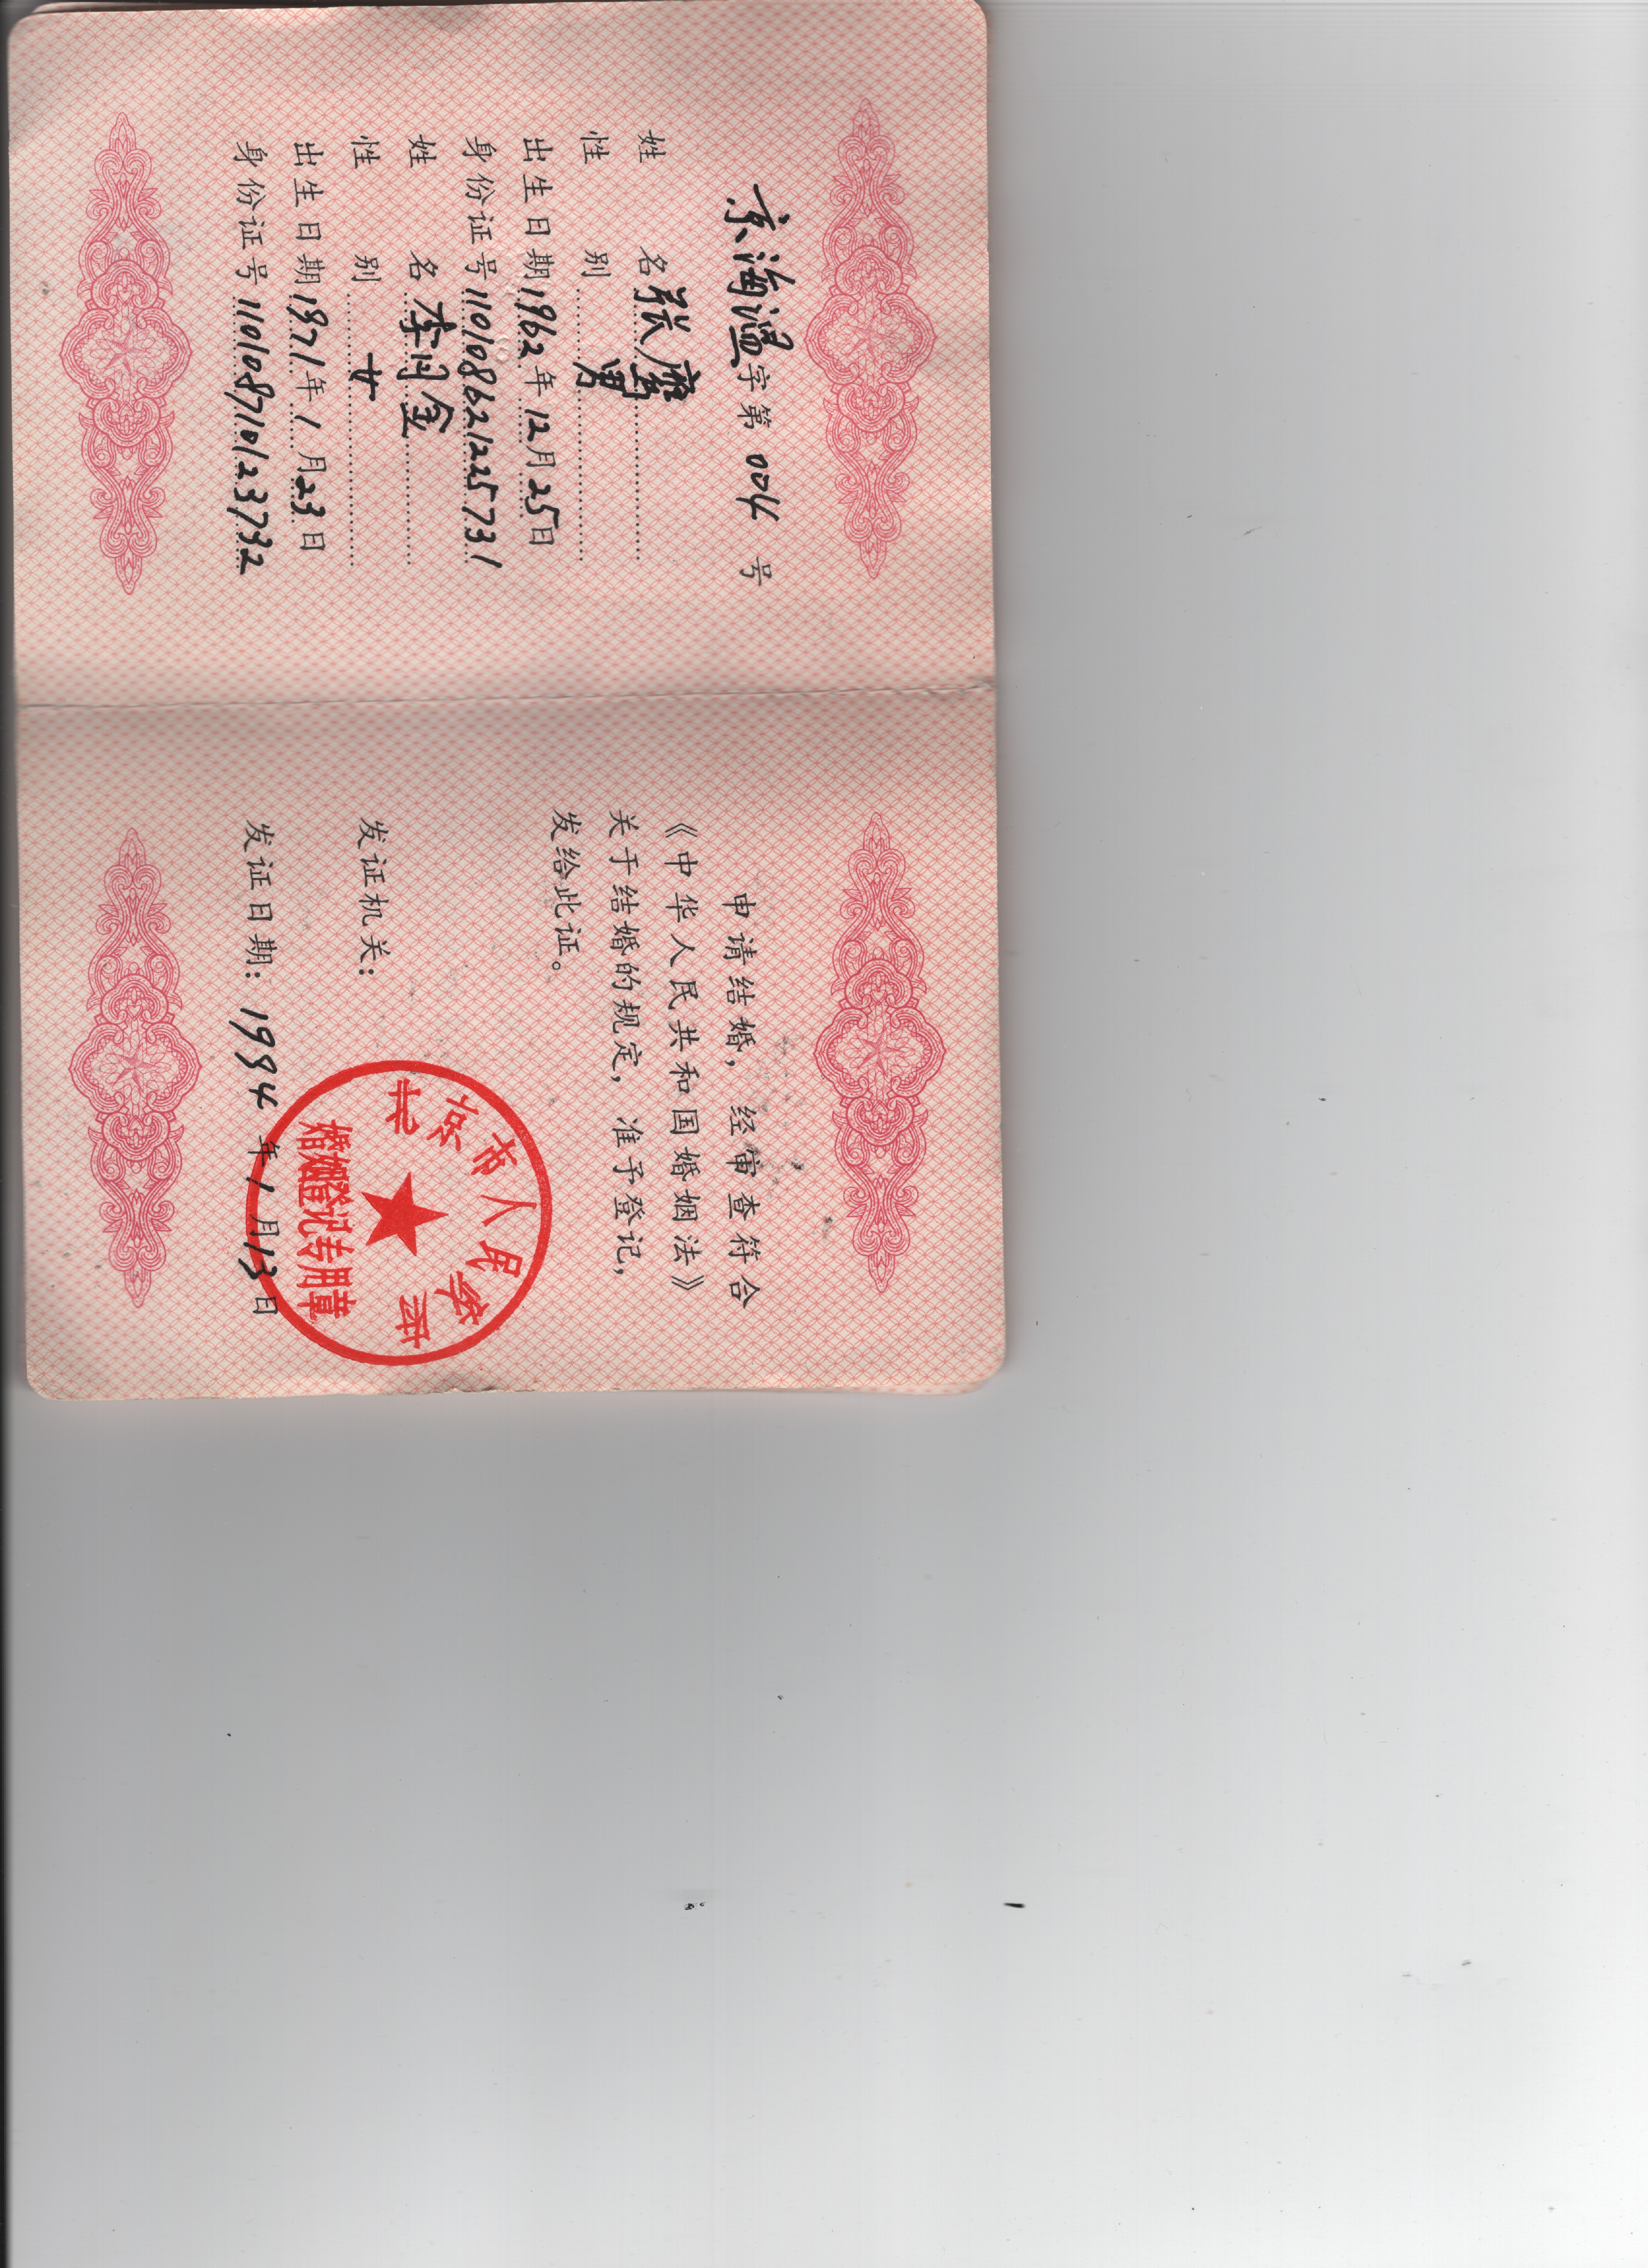 京海温字第 004 号
姓 名 张磨
性 别 男
出生日期 1962 年 12 月 25 日
身份证号 110108621225731
姓 名 李闰金
性 别 女
出生日期 1971 年 1 月 23 日
身份证号 110108710123732
申请结婚,经审查符合
《中华人民共和国婚姻法》
关于结婚的规定,准予登记,
发给此证。
发证机关:
北京市人民
婚姻登记专用章
发证日期: 1994 年 1 月 13 日